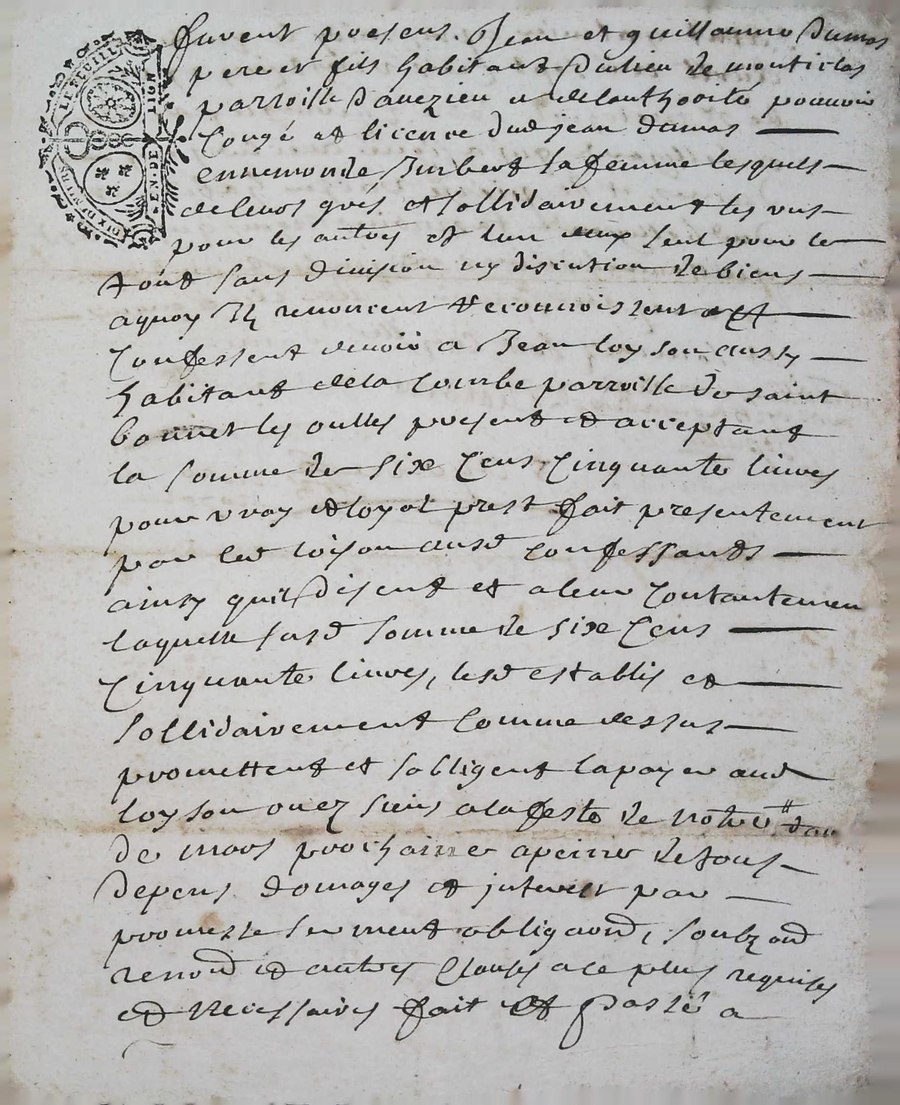 LE FEUILL
DIX DENIERS
GENE
furent presens Jean et guillaume Dumas
pere et fils habitant du lieu de
parroisse d'avezieu et de lauthorité pouvoir
Congé et licence dud jean dumas
ennemonde Imbert sa femme lesquels
de leurs grés et sollidairement les uns
pour les autres et lun deux seul pour le
tout sans division ny discution de biens
aquoy Ilz renoncent Reconnoissent et
Confessent devoir a Jean loyson aussy
habitant de la Combe parroisse de saint
bonnet les oulles present et acceptant
la somme de six Cens Cinquante livres
pour vray et loyal prest fait presentement
par led loison ausd confessants
ainsy quils disent et a leur Contantemen
laquelle susd somme de six Cens
Cinquante livres, lesd establis et
sollidairement Comme dessus
promettent et sobligent la payer aud
loyson ou ez siens a la feste de notre dam
de mars prochaine a peine de tous
depens domages et interest par
promesse serment obligaond, soubzaond
renond et autres Clauses a ce plus requises
et necessaires fait et passé a